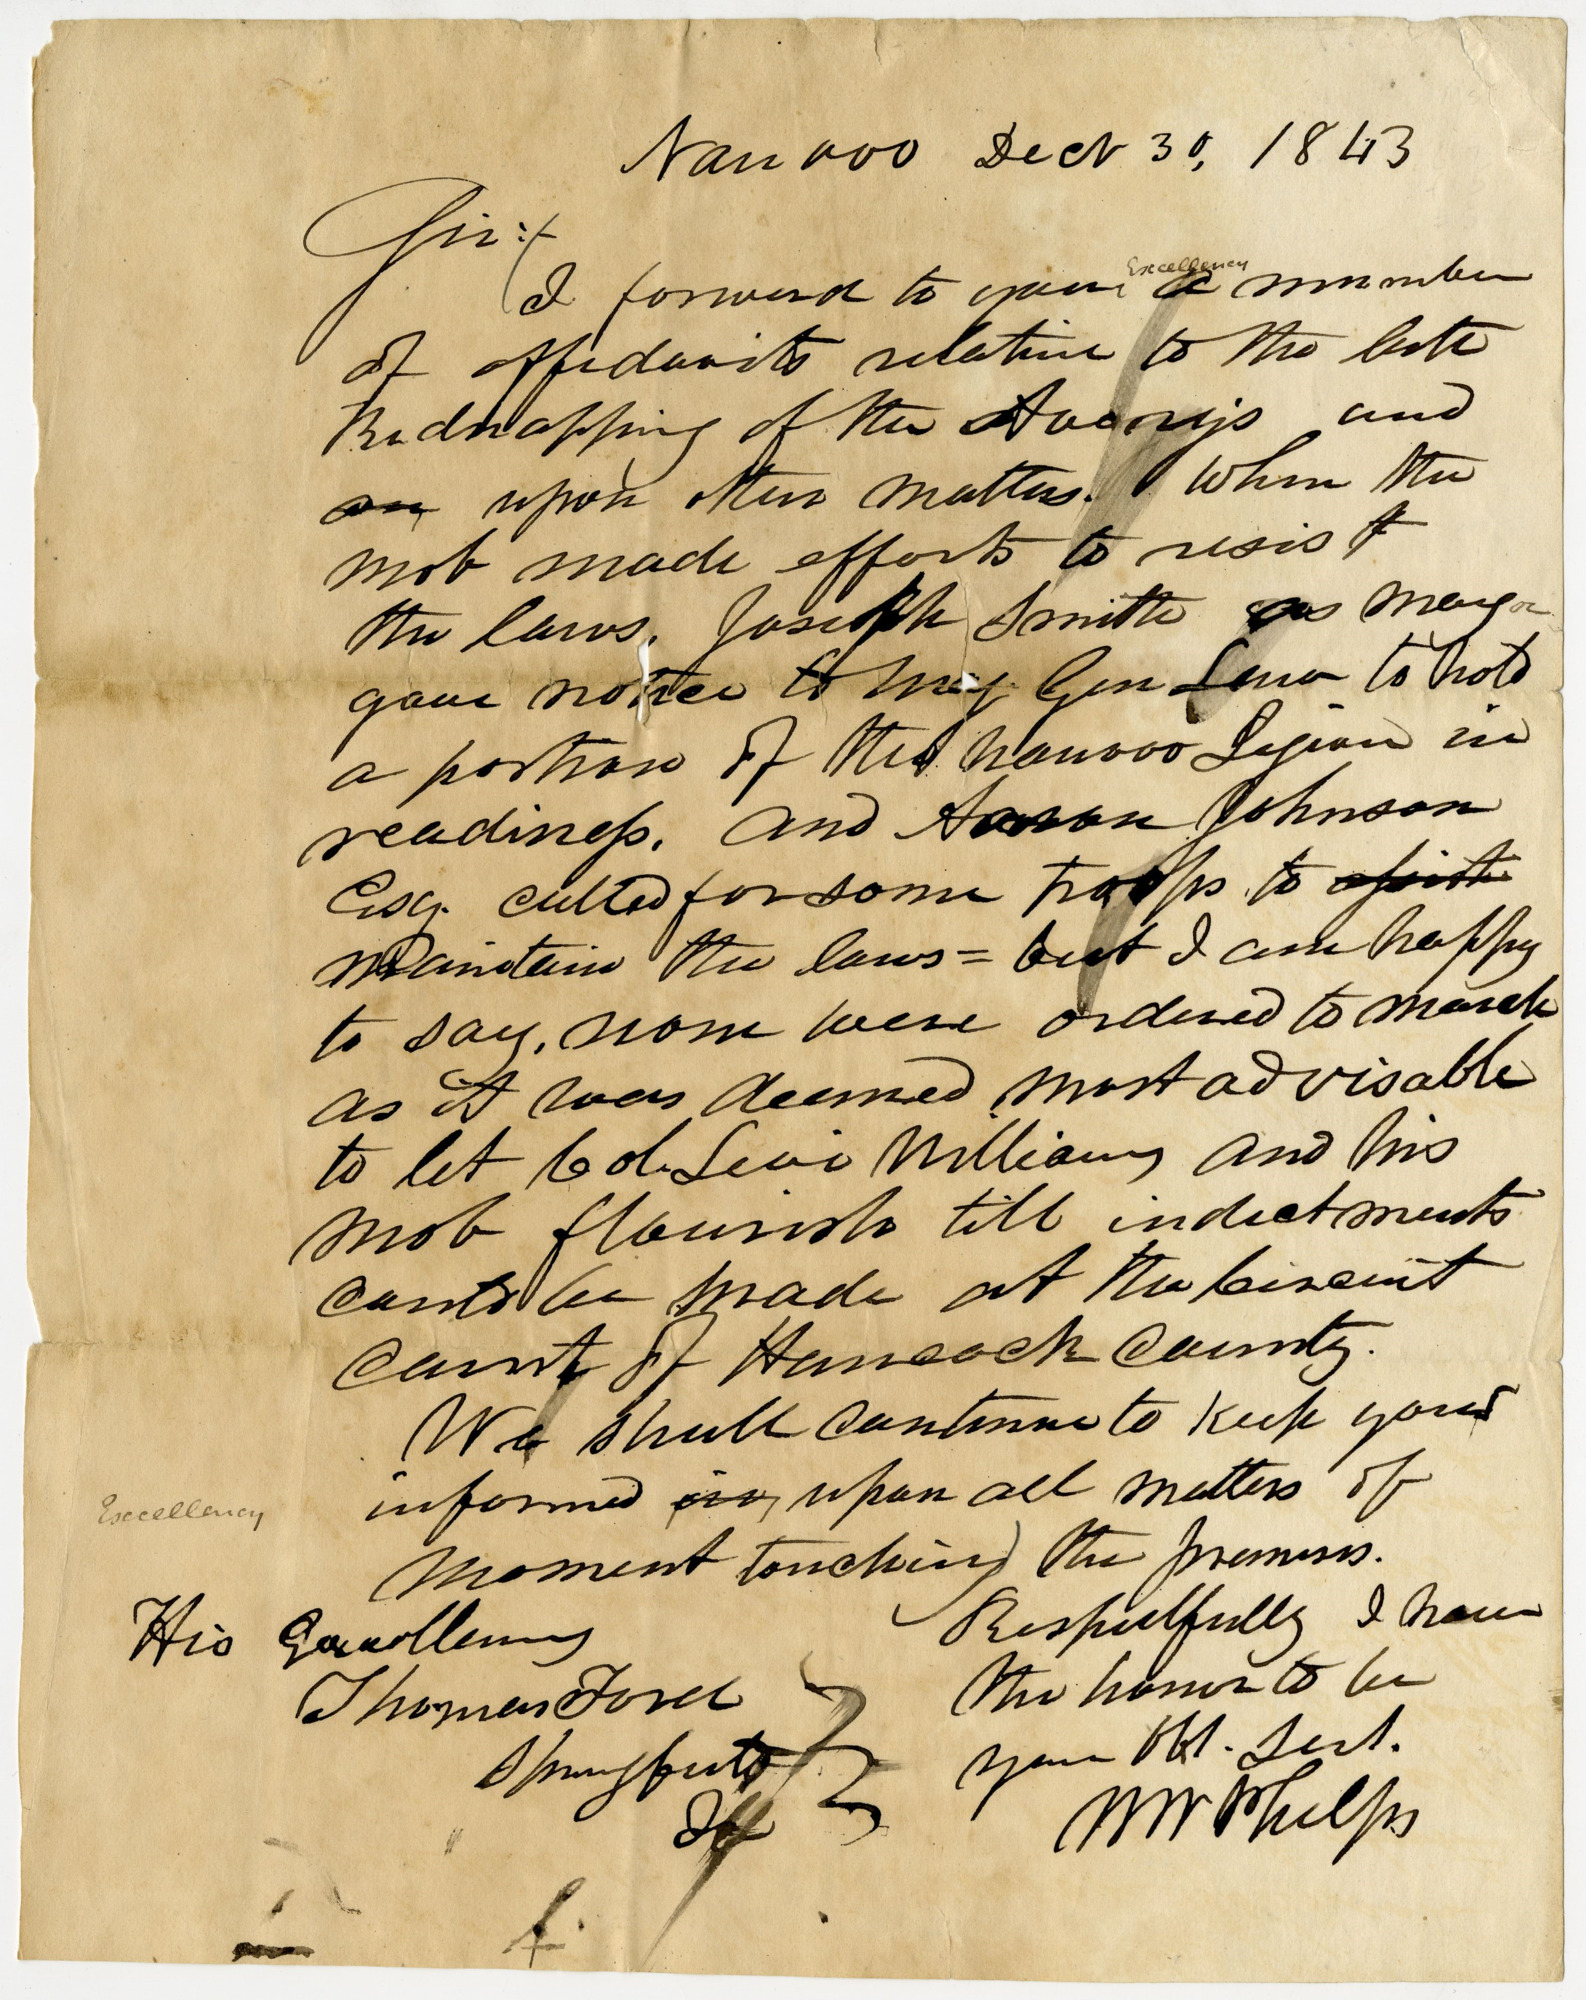 Nauvoo Decr 30, 1843
Sir:
Excellency
I forward to your a number
of affidavits relative to the late
Kidnapping of the Averys and
on upon other matters. When the
mob made efforts to resist
the laws, Joseph Smith as mayor
gave notice to Maj. Gen Law to hold
a portion of the Nauvoo Legion in
readiness, and Aaron Johnson
Esq. called for some troops to assist
maintain the laws = but I am happy
to say, none were ordered to march
as it was deemed most advisable
to let Col. Levi Williams and his
mob flourish till indictments
could be made at the Circuit
Court of Hancock County.
We shall continue to keep your
Excellency
informed upon all matters of
moment touching the premises.
Respectfully I have
the honor to be
your Obt. Sevt.
W W Phelps
His Excellency
Thomas Ford
Springfield
Ill